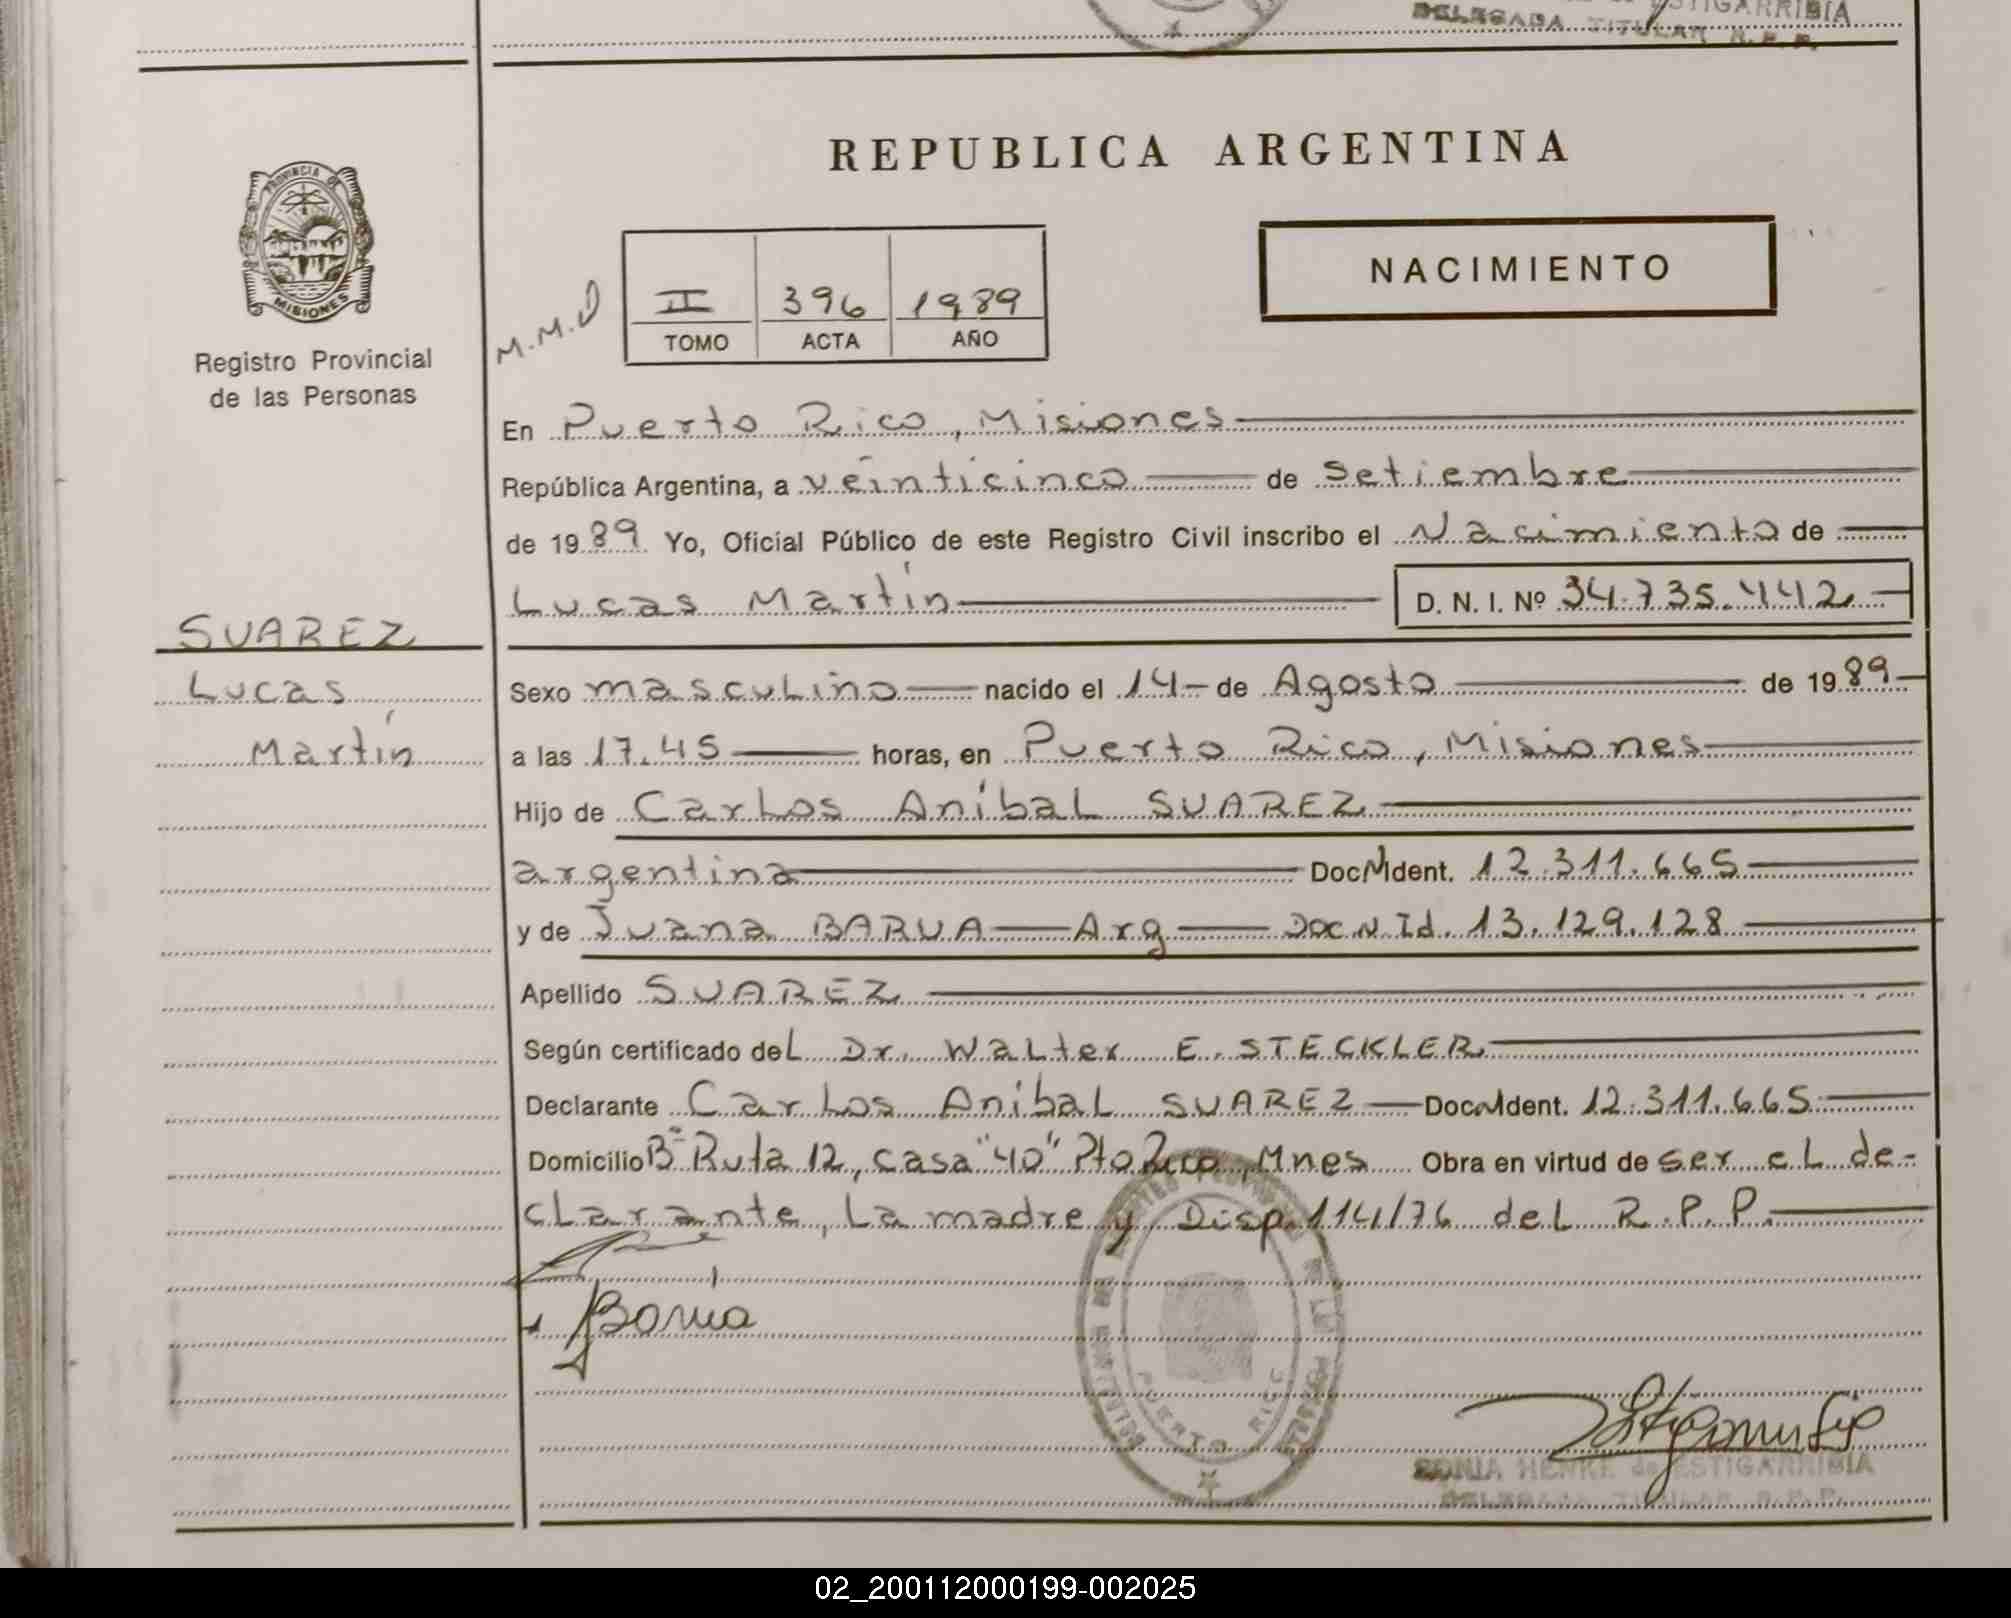 ESTIGARRIBIA
DELEGADA TITULAR R.P.P.
PROVINCIA DE
MISIONES
Registro Provincial
de las Personas
REPUBLICA ARGENTINA
NACIMIENTO
M.M.
II 396 1989
TOMO ACTA AÑO
En Puerto Rico, Misiones
República Argentina, a veinticinco de Setiembre
de 1989 Yo, Oficial Público de este Registro Civil inscribo el Nacimiento de
Lucas Martín D. N. I. Nº 34.735.442
SUAREZ
Lucas
Martín
Sexo masculino nacido el 14 de Agosto de 1989
a las 17.45 horas, en Puerto Rico, Misiones
Hijo de Carlos Aníbal SUAREZ
argentina Doc N Ident. 12.311.665
y de Juana BARUA Arg Doc N Id. 13.129.128
Apellido SUAREZ
Según certificado del Dr. Walter E. STECKLER
Declarante Carlos Anibal SUAREZ Doc N Ident. 12.311.665
Domicilio Bº Ruta 12, casa "40" Pto Rico, Mnes Obra en virtud de ser el de-
clarante, la madre y Disp. 114/76 del R.P.P.
PUERTO RICO
SONIA HENKE de ESTIGARRIBIA
DELEGADA TITULAR R.P.P.
02_200112000199-002025